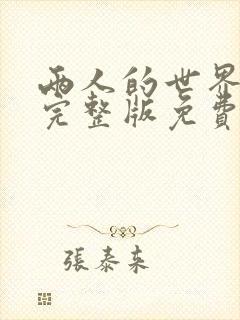 兩人的世界
完整版免費
張泰来